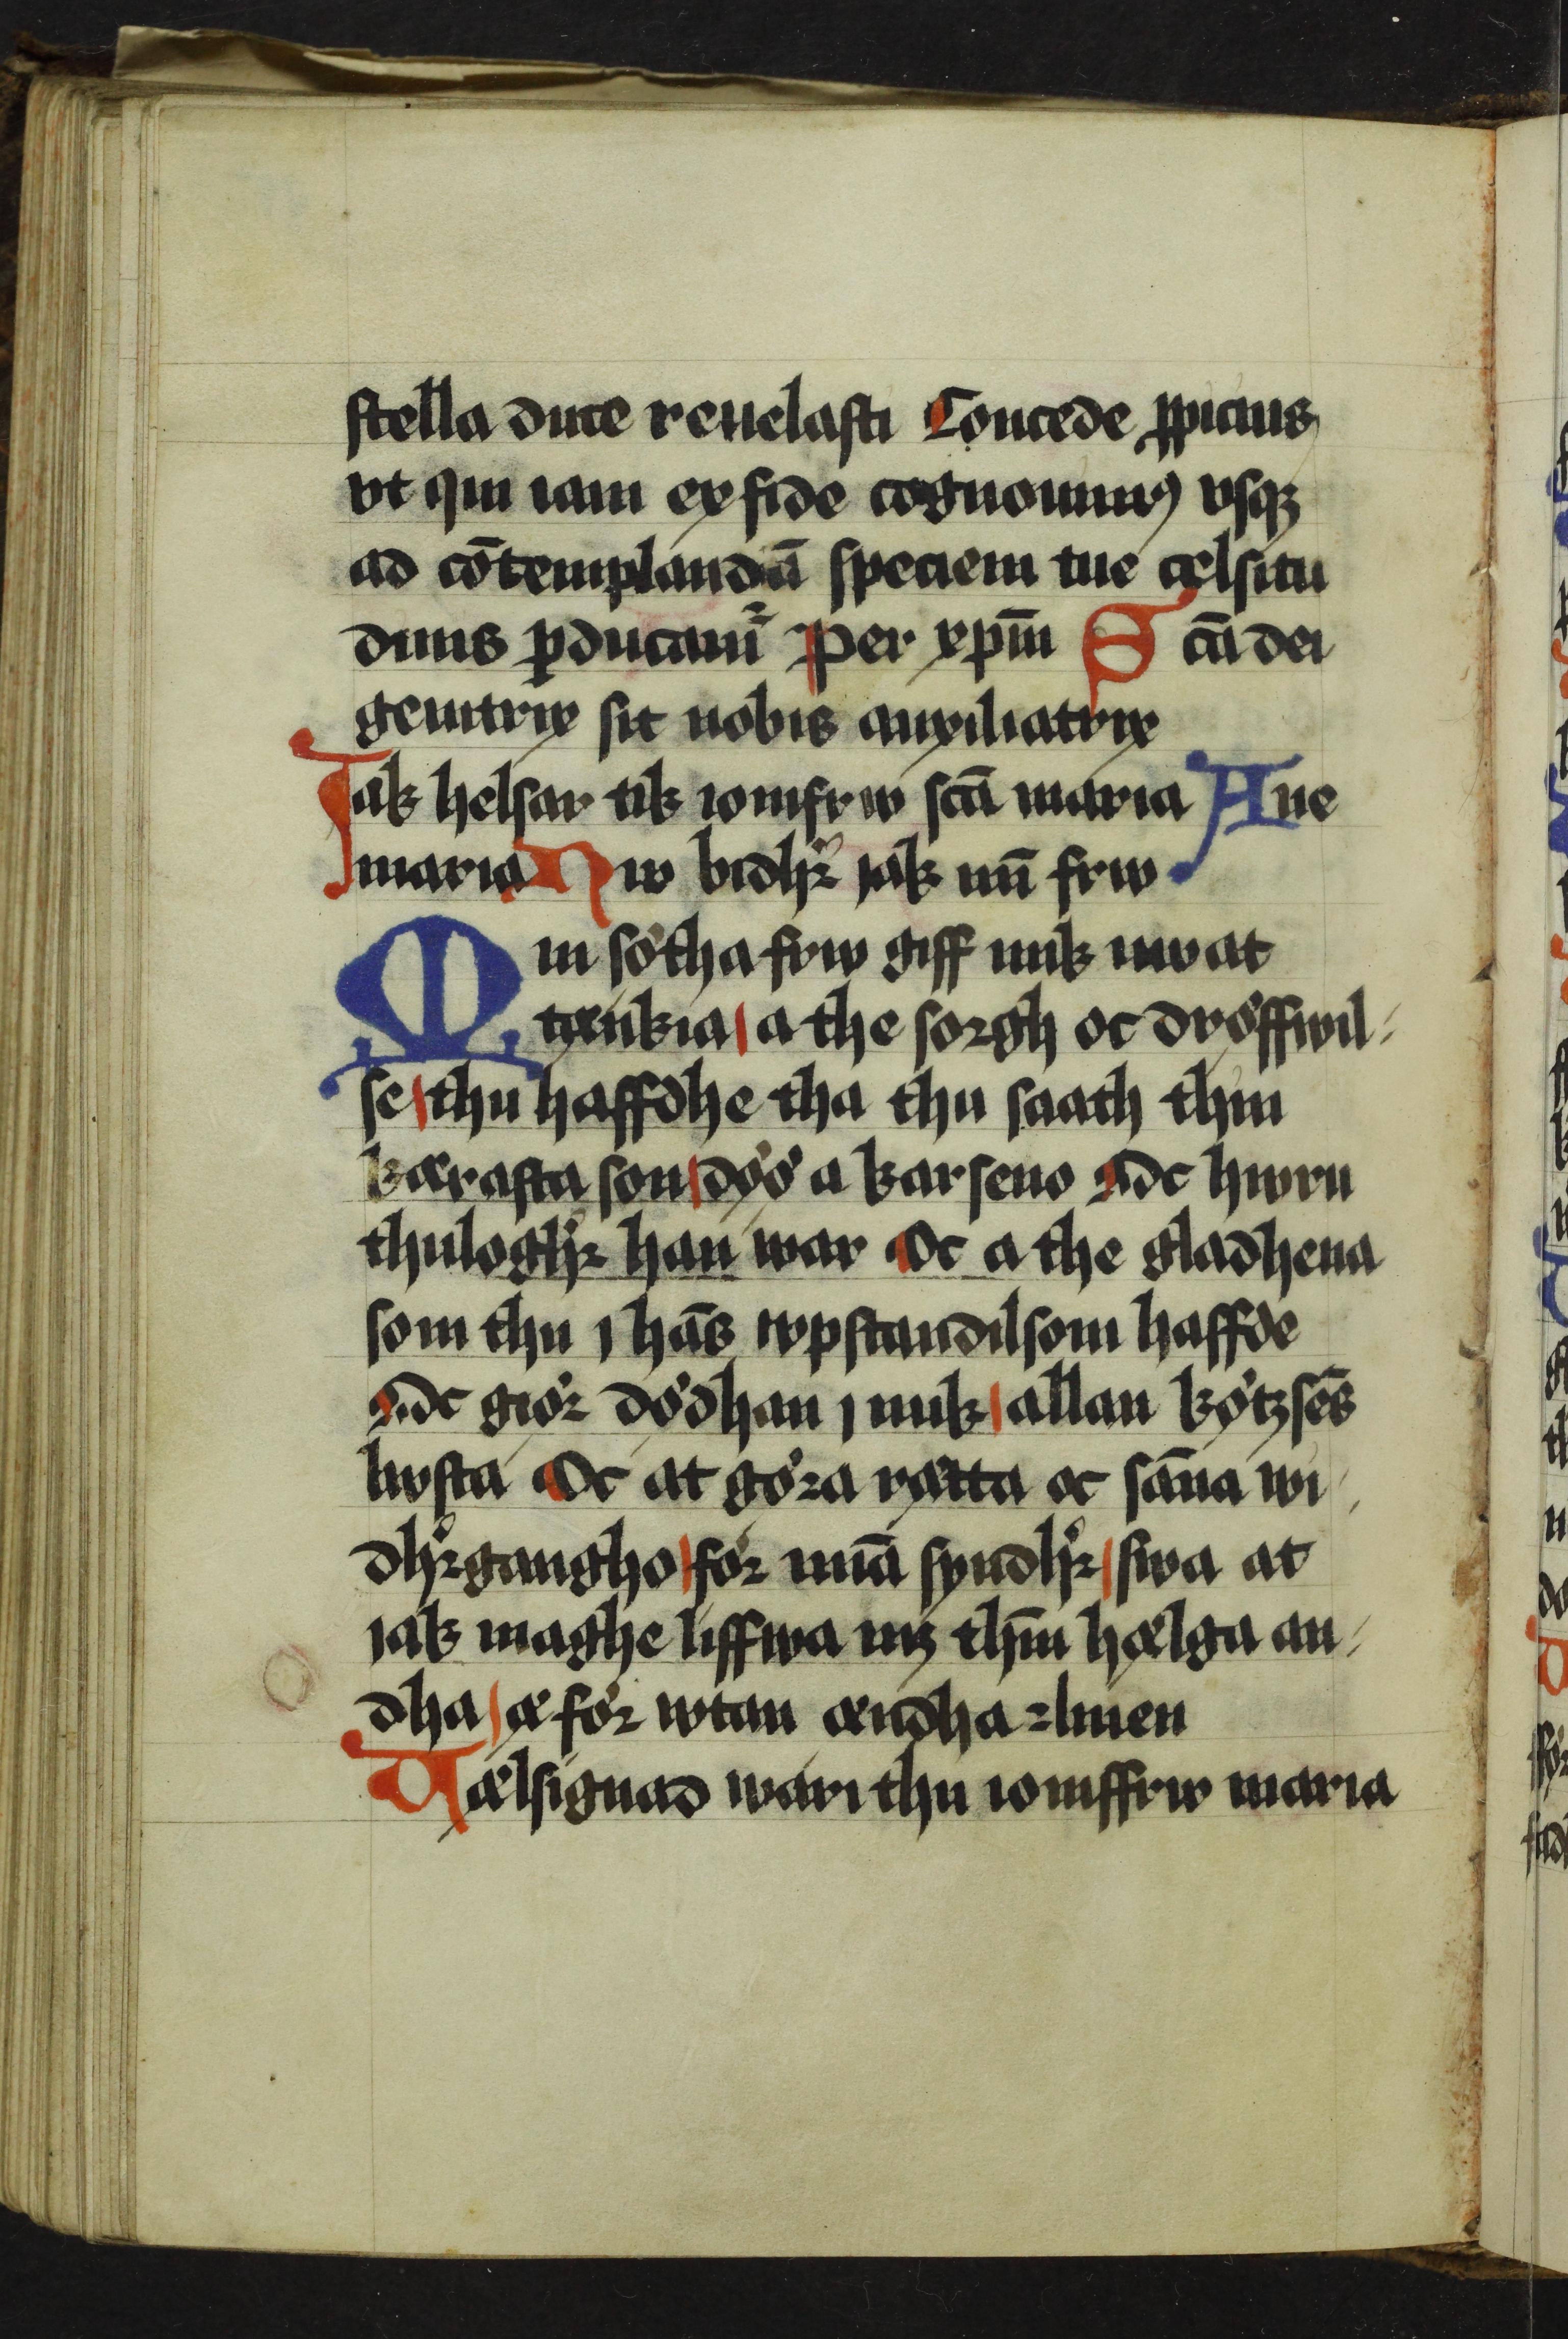 stella duce reuelasti Concede ꝓpicius
vt qui iam ex fide cognouimꝰ vsqꝫ
ad cōtemplandā speciem tue celsitu
dinis ꝑducamur Per xpm̄ Scā dei
genitrix sit nobis auxiliatrix
Jak helsar tik iomfrw scā maria Aue
maria Nw bidhr iak mī frw
Min sötha frw giff mik nw at
tænkia a the sorgh oc dröffwil-
se thu haffdhe tha thu saath thin
kærasta son döö a karseno Oc hwru
thuloghr han war Oc a the gladhena
som thu j hās wpstandilsom haffde
Oc giör dödhan j mik allan kötzsēs
lwsta Oc at göra rætta oc sāna wi-
dhrgangho för mīa syndhr swa at
iak maghe liffwa mz thm̄ hælga an-
dha æ för wtan ændha Amen
Vælsignad wari thu iomffrw maria